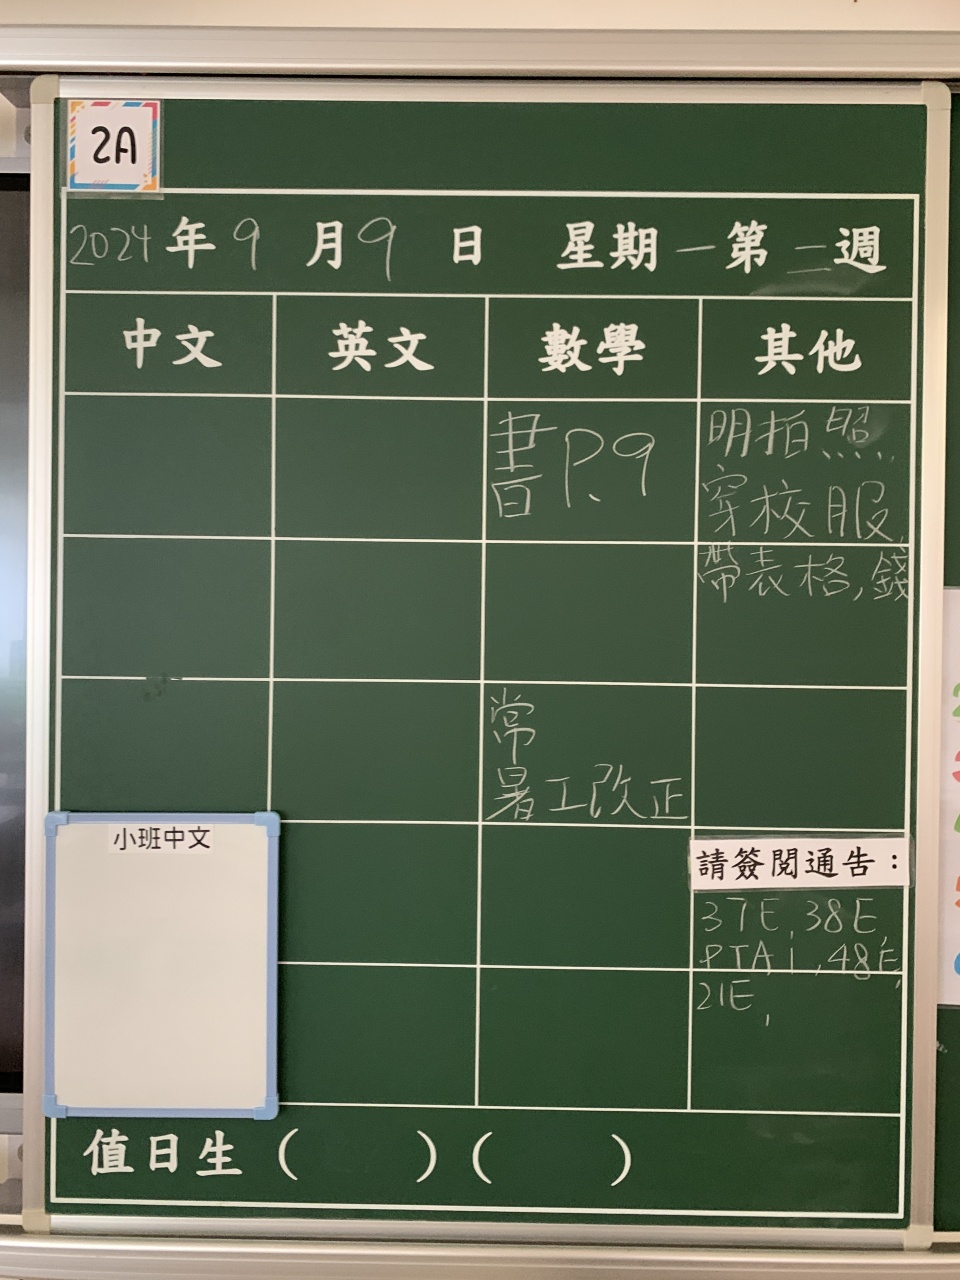 2A
2024年9月9日 星期一第二週
中文 英文 數學 其他
書P.9
明拍照,
穿校服,
帶表格,錢
常
暑工改正
小班中文
請簽閱通告：
37E,38E,
PTA1,48E,
21E,
值日生( )( )